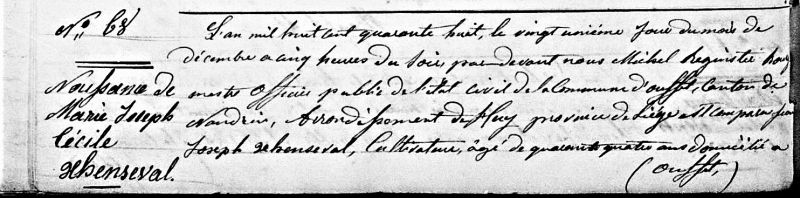 N° 68
Naissance de
Marie Joseph
Cécile
Xhenseval.
L'an mil huit cent quarante huit, le vingt unième jour du mois de
décembre a cinq heures du soir par devant nous Michel Registre Bourg
mestre Officier public de l'état civil de la Commune d'ouffet, Canton de
Nandrin, Arrondissement de Huy province de Liège est comparu
Joseph Xhenseval, Cultivateur, âgé de quarante quatre ans domicilié a
(ouffet,)